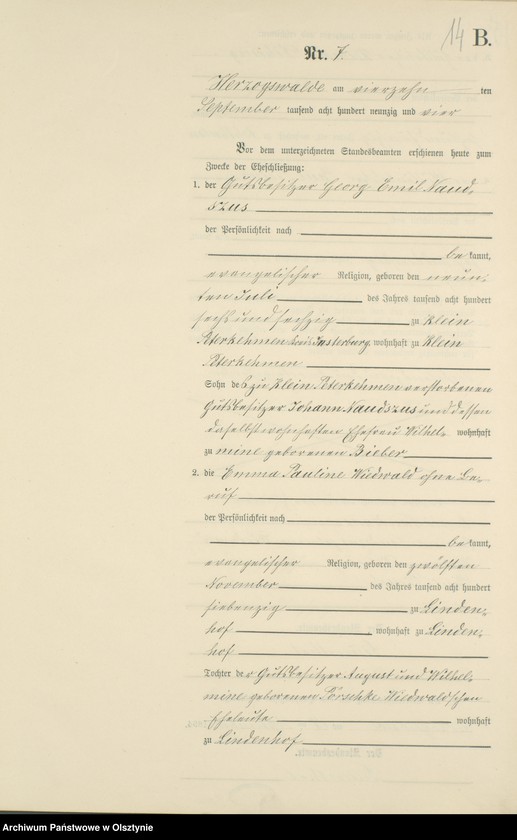 14 B.
Nr. 7.
Herzogswalde am vierzehn ten
September tausend acht hundert neunzig und vier
Vor dem unterzeichneten Standesbeamten erschienen heute zum
Zwecke der Eheschließung:
1. der Gutsbesitzer Georg Emil Naud,
szus
der Persönlichkeit nach
be kannt,
evangelischer Religion, geboren den neun,
ten Juli des Jahres tausend acht hundert
sechs und sechzig zu Klein
Peterkehmen Kreis Insterburg, wohnhaft zu Klein
Peterkehmen
Sohn des zu Klein Peterkehmen verstorbenen
Gutsbesitzer Johann Naudszus und dessen
daselbst wohnhaften Ehefrau Wilhel, wohnhaft
zu mine geborenen Bieber
2. die Emma Pauline Wiedwald ohne Be,
ruf
der Persönlichkeit nach
be kannt,
evangelischer Religion, geboren den zwölften
November des Jahres tausend acht hundert
siebenzig zu Linden,
hof wohnhaft zu Linden,
hof
Tochter der Gutsbesitzer August und Wilhel,
mine geborenen Pörschke Wiedwaldschen
Eheleute wohnhaft
zu Lindenhof
Archiwum Państwowe w Olsztynie